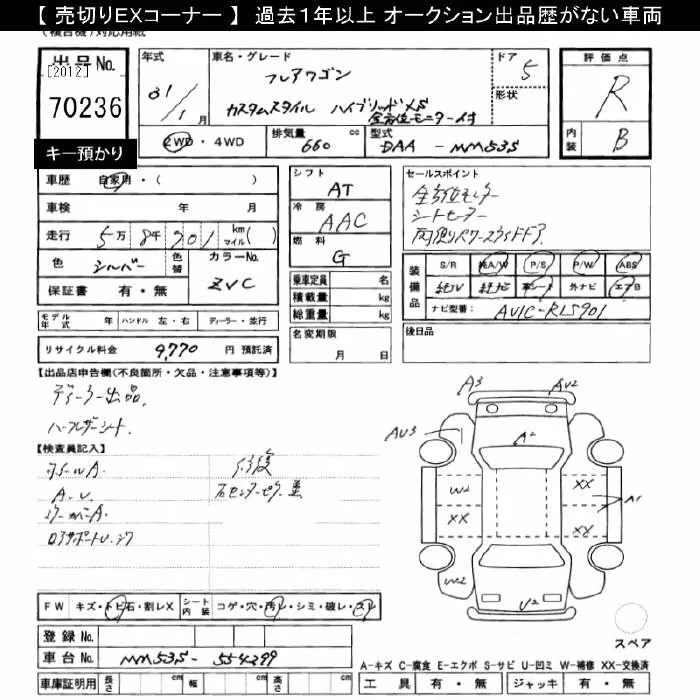 【 売切りEXコーナー 】 過去1年以上 オークション出品歴がない車両
出品No.
[2012]
70236
キー預かり
年式
31/1月
車名・グレード
フレアワゴン
カスタムスタイル ハイブリッドXS
全方位モニター付
ドア
5
形状
2WD・4WD
排気量 660 cc
型式 DAA - MM53S
評価点
R
内装
B
車歴 自家用・( )
車検 年 月
走行 5万 8千 901 km マイル( )
色 シルバー 色替
カラーNo. ZVC
保証書 有・無
シフト AT
冷房 AAC
燃料 G
乗車定員 名
積載量 kg
総重量 kg
セールスポイント
全方位モニター
シートヒーター
両側パワースライドドア
装備品
S/R 純A/W P/S P/W ABS
純TV 純ナビ 革シート 外ナビ エアB
ナビ型番: AVIC-RL5901
モデル年式 年 ハンドル 左・右 ディーラー・並行
名変期限 月 日
後日品
リサイクル料金 9,770 円 預託済
【出品店申告欄(不良箇所・欠品・注意事項等)】
ディーラー出品
ハーフレザーシート
【検査員記入】
ホイールA.
A.U.
修復
右センターピラー
A3
AU2
AU3
A2
W2
XX
A1
XX
XX
W2
U2
スペア
FW キズ・トビ石・割レX シート内装 コゲ・穴・汚レ・シミ・破レ・スレ
登録No.
車台No. MM53S - 554299
車庫証明用 長さ cm 幅 cm 高さ cm
A-キズ C-腐食 E-エクボ S-サビ U-凹ミ W-補修 XX-交換済
工具 有・無 ジャッキ 有・無